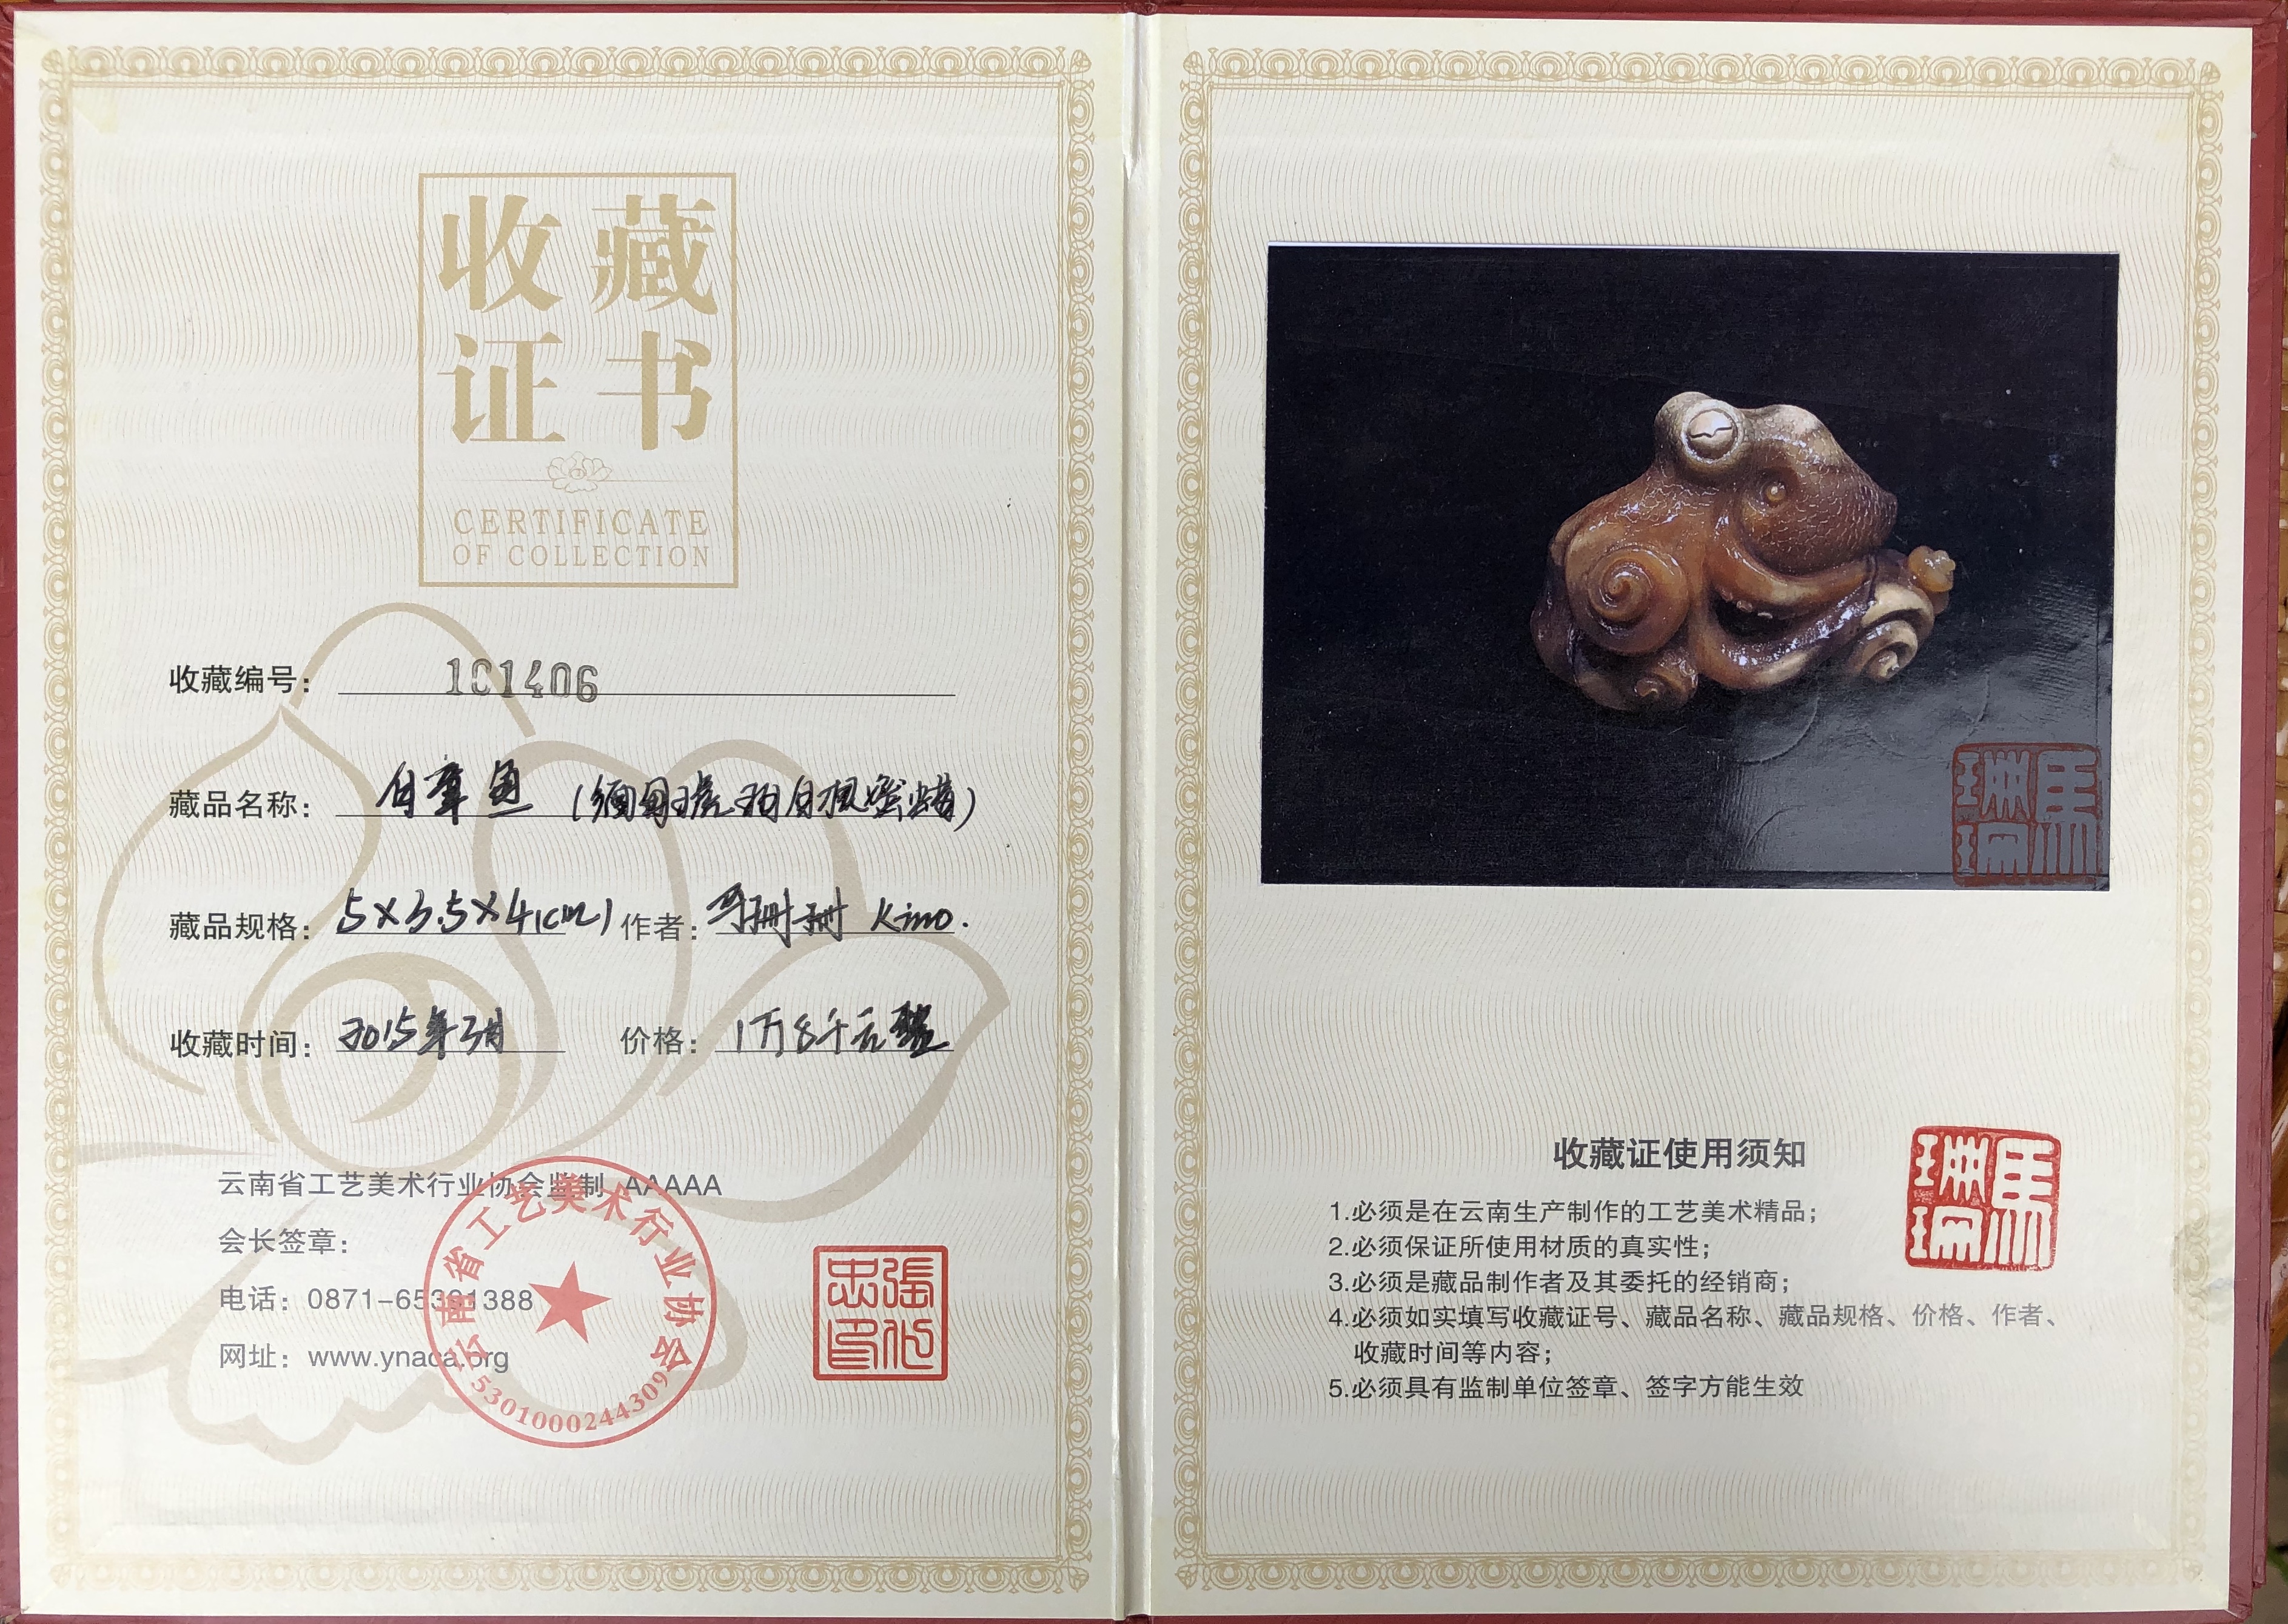 收藏
证书
CERTIFICATE
OF COLLECTION
收藏编号： 101406
藏品名称： 白章鱼 (缅甸琥珀白根蜜蜡)
藏品规格： 5×3.5×4(cm) 作者：马珊珊 Kino.
收藏时间： 2015年3月 价格： 1万8千元整
云南省工艺美术行业协会监制 AAAAA
会长签章：
电话：0871-65391388
网址：www.ynaca.org
云南省工艺美术行业协会
5301000244309
马珊珊
收藏证使用须知
马珊珊
1.必须是在云南生产制作的工艺美术精品；
2.必须保证所使用材质的真实性；
3.必须是藏品制作者及其委托的经销商；
4.必须如实填写收藏证号、藏品名称、藏品规格、价格、作者、
收藏时间等内容；
5.必须具有监制单位签章、签字方能生效